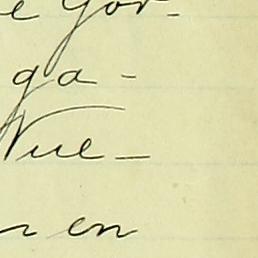 e Gor-
ga-
Nue-
en